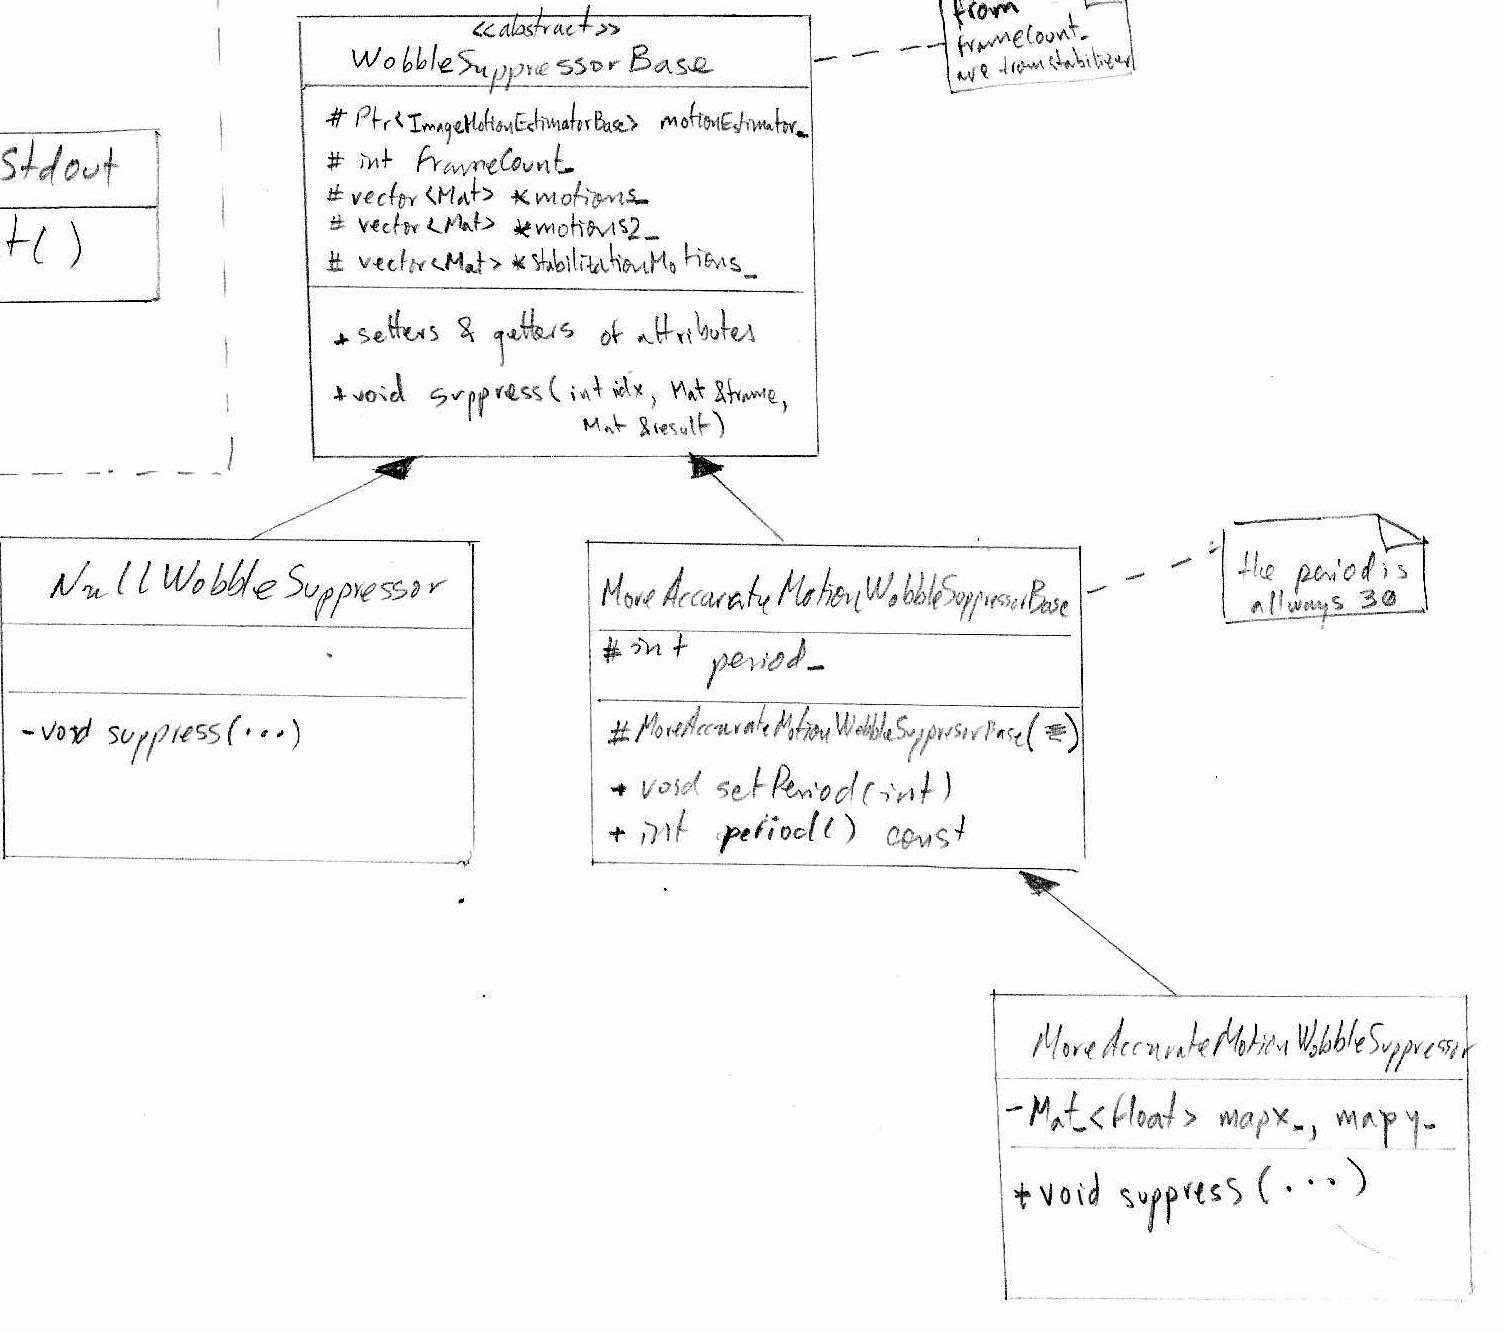 from
frameCount_
are from stabilizer
<<abstract>>
WobbleSuppressorBase
# Ptr<ImageMotionEstimatorBase> motionEstimator_
# int frameCount_
# vector<Mat> *motions_
# vector<Mat> *motions2_
# vector<Mat> *stabilizationMotions_
+ setters & getters of attributes
+ void suppress(int idx, Mat &frame,
Mat &result)
Stdout
t()
NullWobbleSuppressor
- void suppress(...)
MoreAccurateMotionWobbleSuppressorBase
# int period_
# MoreAccurateMotionWobbleSuppressorBase( )
+ void setPeriod(int)
+ int period() const
the period is
allways 30
MoreAccurateMotionWobbleSuppressor
- Mat_<float> mapx_, mapy_
+ void suppress(...)